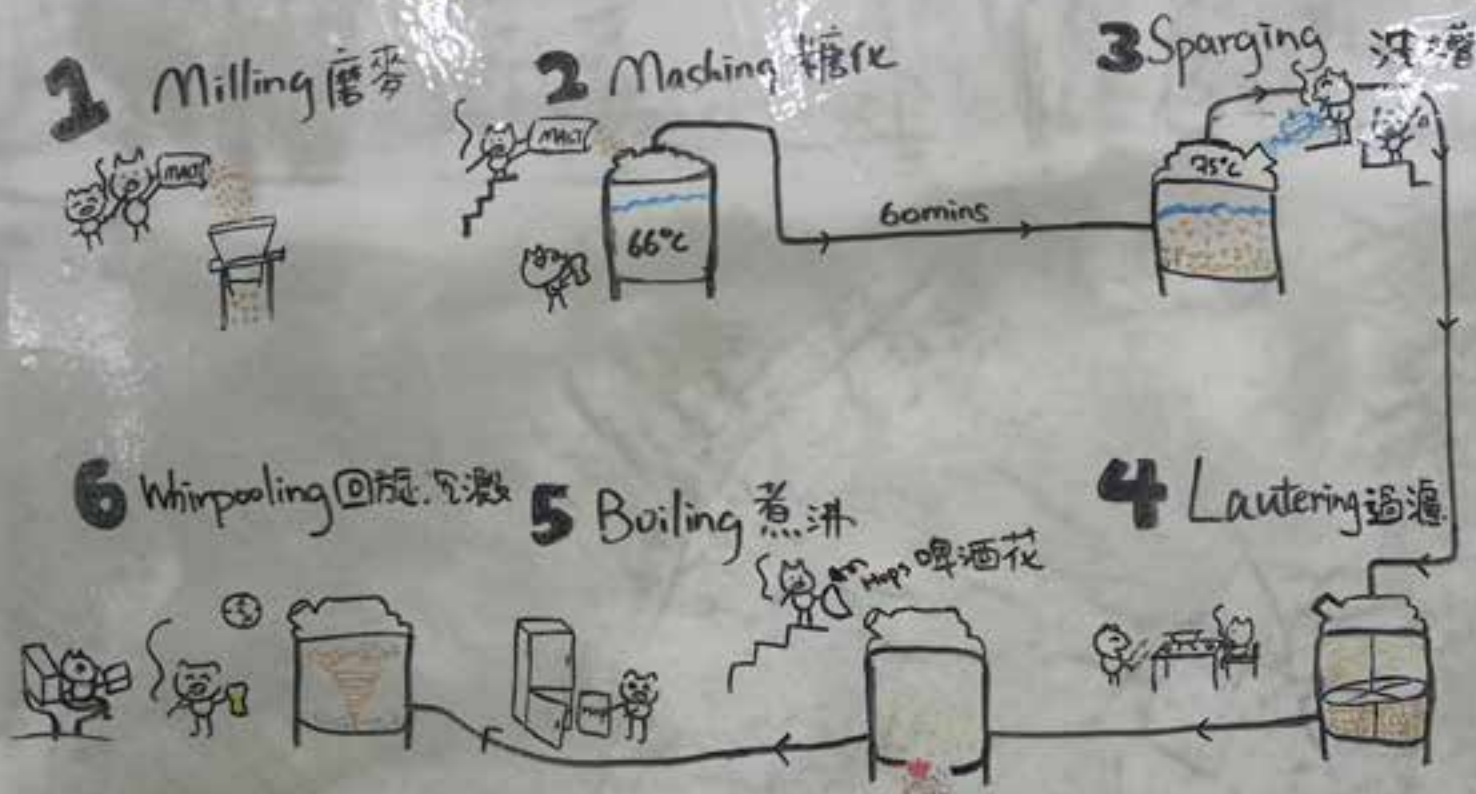 1 Milling 磨麥
MALT
2 Mashing 糖化
MALT
66°C
60mins
3 Sparging 洗
75°C
4 Lautering 過濾
5 Boiling 煮沸
Hops 啤酒花
6 Whirpooling 回旋沉澱